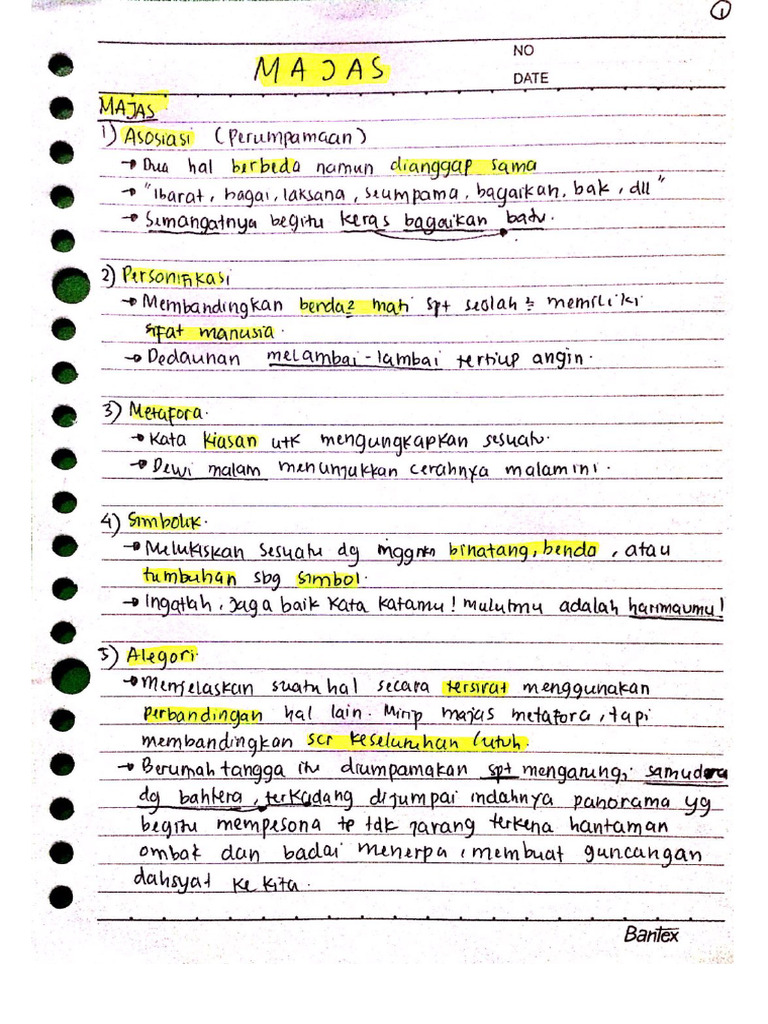 1
MAJAS
NO
DATE
MAJAS
1) Asosiasi (Perumpamaan)
→ Dua hal berbeda namun dianggap sama
→ "Ibarat, bagai, laksana, seumpama, bagaikan, bak, dll"
→ Semangatnya begitu keras bagaikan batu.
2) Personifikasi
→ Membandingkan benda2 mati spt seolah2 memiliki
sifat manusia.
→ Dedaunan melambai-lambai tertiup angin.
3) Metafora.
→ Kata kiasan utk mengungkapkan sesuatu.
→ Dewi malam menunjukkan cerahnya malam ini.
4) Simbolik.
→ Melukiskan sesuatu dg mggnkn binatang, benda, atau
tumbuhan sbg simbol.
→ Ingatlah, jaga baik kata katamu! mulutmu adalah harimaumu!
5) Alegori.
→ Menjelaskan suatu hal secara tersirat menggunakan
perbandingan hal lain. Mirip majas metafora, tapi
membandingkan scr keseluruhan / utuh.
→ Berumah tangga itu diumpamakan spt mengarungi samudera
dg bahtera, terkadang dijumpai indahnya panorama yg
begitu mempesona tp tdk jarang terkena hantaman
ombak dan badai menerpa, membuat guncangan
dahsyat ke kita.
Bantex